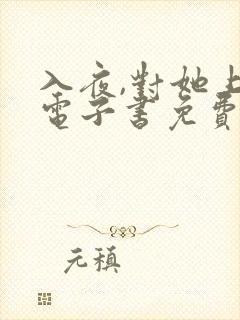 入夜,對她上
電子書免費
元稹